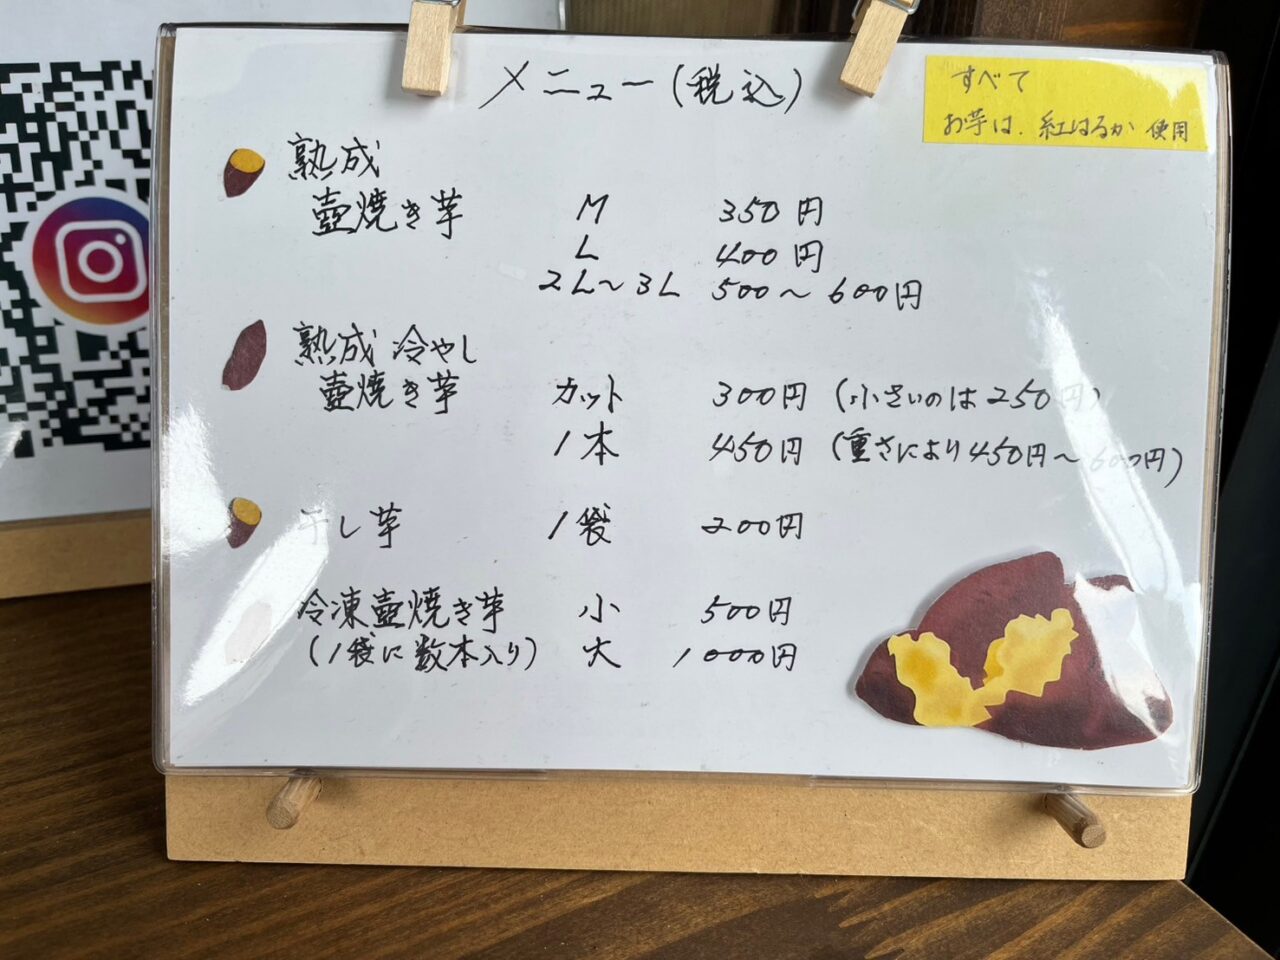 メニュー(税込)
すべて
お芋は、紅はるか 使用
熟成
壺焼き芋 M 350円
L 400円
2L～3L 500～600円
熟成 冷やし
壺焼き芋 カット 300円 (小さいのは250円)
1本 450円 (重さにより450円～600円)
干し芋 1袋 200円
冷凍壺焼き芋 小 500円
(1袋に数本入り) 大 1000円